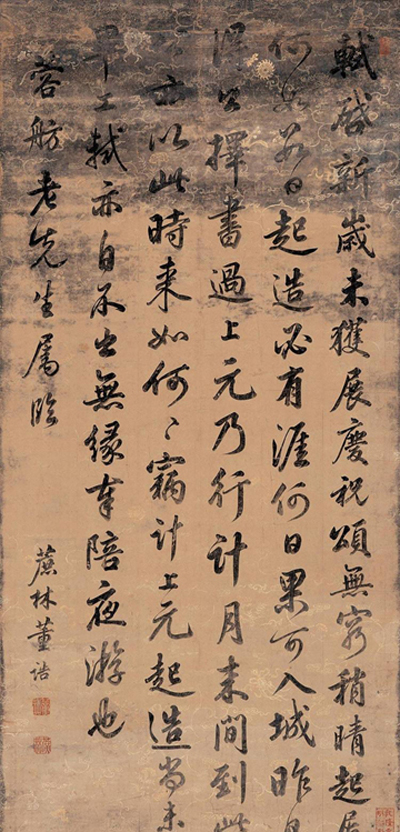 軾啓新歲未獲展慶祝頌無窮稍晴起居
何如數日起造必有涯何日果可入城昨日
得公擇書過上元乃行計月末間到此
公亦以此時来如何〻竊計上元起造尚未
畢工軾亦自不出無緣奉陪夜游也
蓉舫老先生屬臨
蔗林董誥